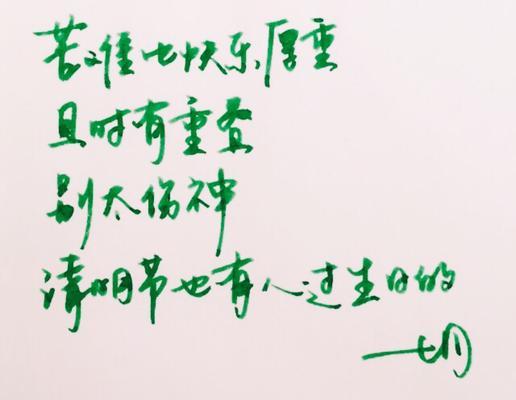 苦难比快乐厚重
且时有重叠
别太伤神
清明节也有人过生日的
——七月